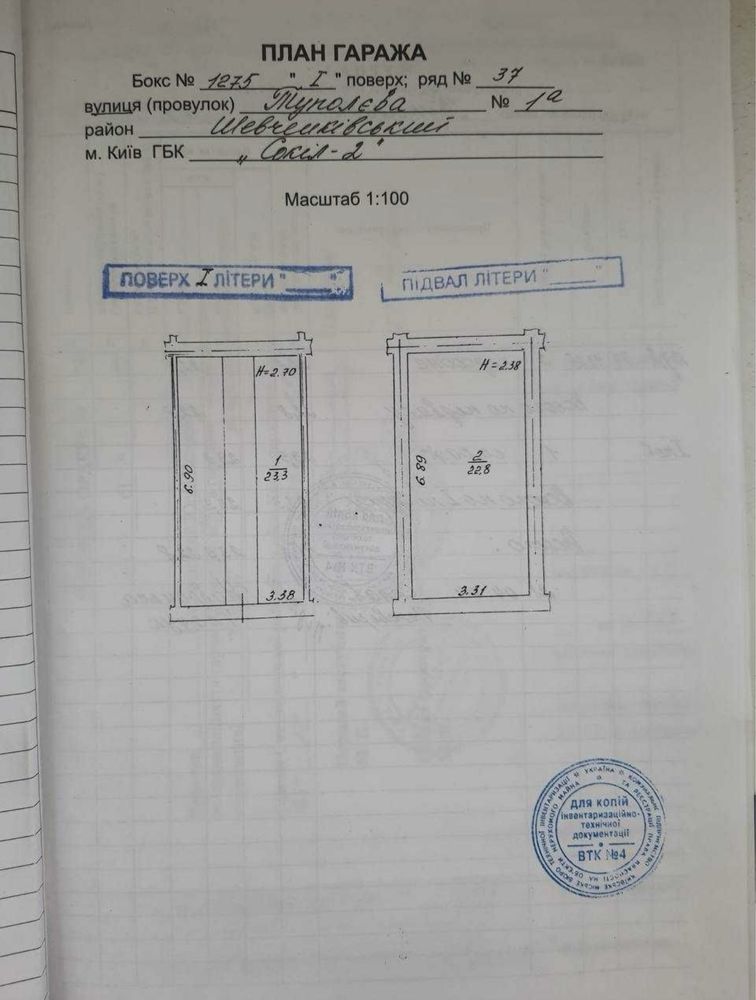 ПЛАН ГАРАЖА
Бокс № 1275 "I" поверх; ряд № 37
вулиця (провулок) Туполєва № 1а
район Шевченківський
м. Київ ГБК „Сокіл-2"
Масштаб 1:100
ПОВЕРХ I ЛІТЕРИ "______"
ПІДВАЛ ЛІТЕРИ "______"
H=2.70
H=2.38
6.90
1
23,3
6.89
2
22,8
3.38
3.31
ДЛЯ КОПІЙ
інвентаризаційно-
технічної
документації
ВТК №4